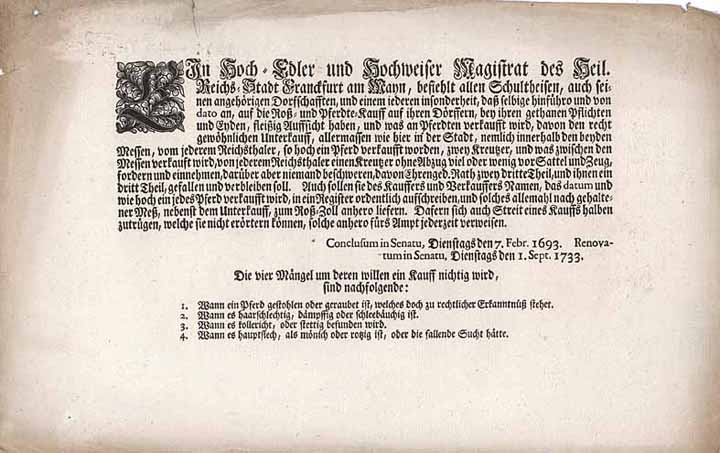 EIn Hoch-Edler und Hochweiser Magistrat des Heil.
Reichs-Stadt Franckfurt am Mayn, befiehlt allen Schultheisen, auch sei-
nen angehörigen Dorffschafften, und einem iederen insonderheit, daß selbige hinführo und von
dato an, auf die Roß- und Pferdte-Kauff auf ihren Dörffern, bey ihren gethanen Pflichten
und Eyden, fleißig Auffsicht haben, und was an Pferdten verkaufft wird, davon den recht
gewöhnlichen Unterkauff, allermassen wie hier in der Stadt, nemlich innerhalb den beyden
Messen, vom jederem Reichsthaler, so hoch ein Pferd verkaufft worden, zwey Kreutzer, und was zwischen den
Messen verkauft wird, von jederem Reichsthaler einen Kreutzer ohne Abzug viel oder wenig vor Sattel und Zeug,
fordern und einnehmen, darüber aber niemand beschweren, davon Ehrenged. Rath zwey dritte Theil, und ihnen ein
dritt Theil, gefallen und verbleiben soll. Auch sollen sie des Kauffers und Verkauffers Namen, das datum und
wie hoch ein jedes Pferd verkaufft wird, in ein Register ordentlich aufschreiben, und solches allemahl nach gehalte-
ner Meß, nebenst dem Unterkauff, zum Roß-Zoll anhero liefern. Dafern sich auch Streit eines Kauffs halben
zutrügen, welche sie nicht erörtern können, solche anhero fürs Ampt jederzeit verweisen.
Conclusum in Senatu, Dienstags den 7. Febr. 1693. Renova-
tum in Senatu, Dienstags den 1. Sept. 1733.
Die vier Mängel um deren willen ein Kauff nichtig wird,
sind nachfolgende:
1. Wann ein Pferd gestohlen oder geraubet ist, welches doch zu rechtlicher Erkanntnüß stehet.
2. Wann es haarschlechtig, dämpffig oder schleebäuchig ist.
3. Wann es kollericht, oder stettig befunden wird.
4. Wann es hauptsiech, als mönich oder rotzig ist, oder die fallende Sucht hätte.